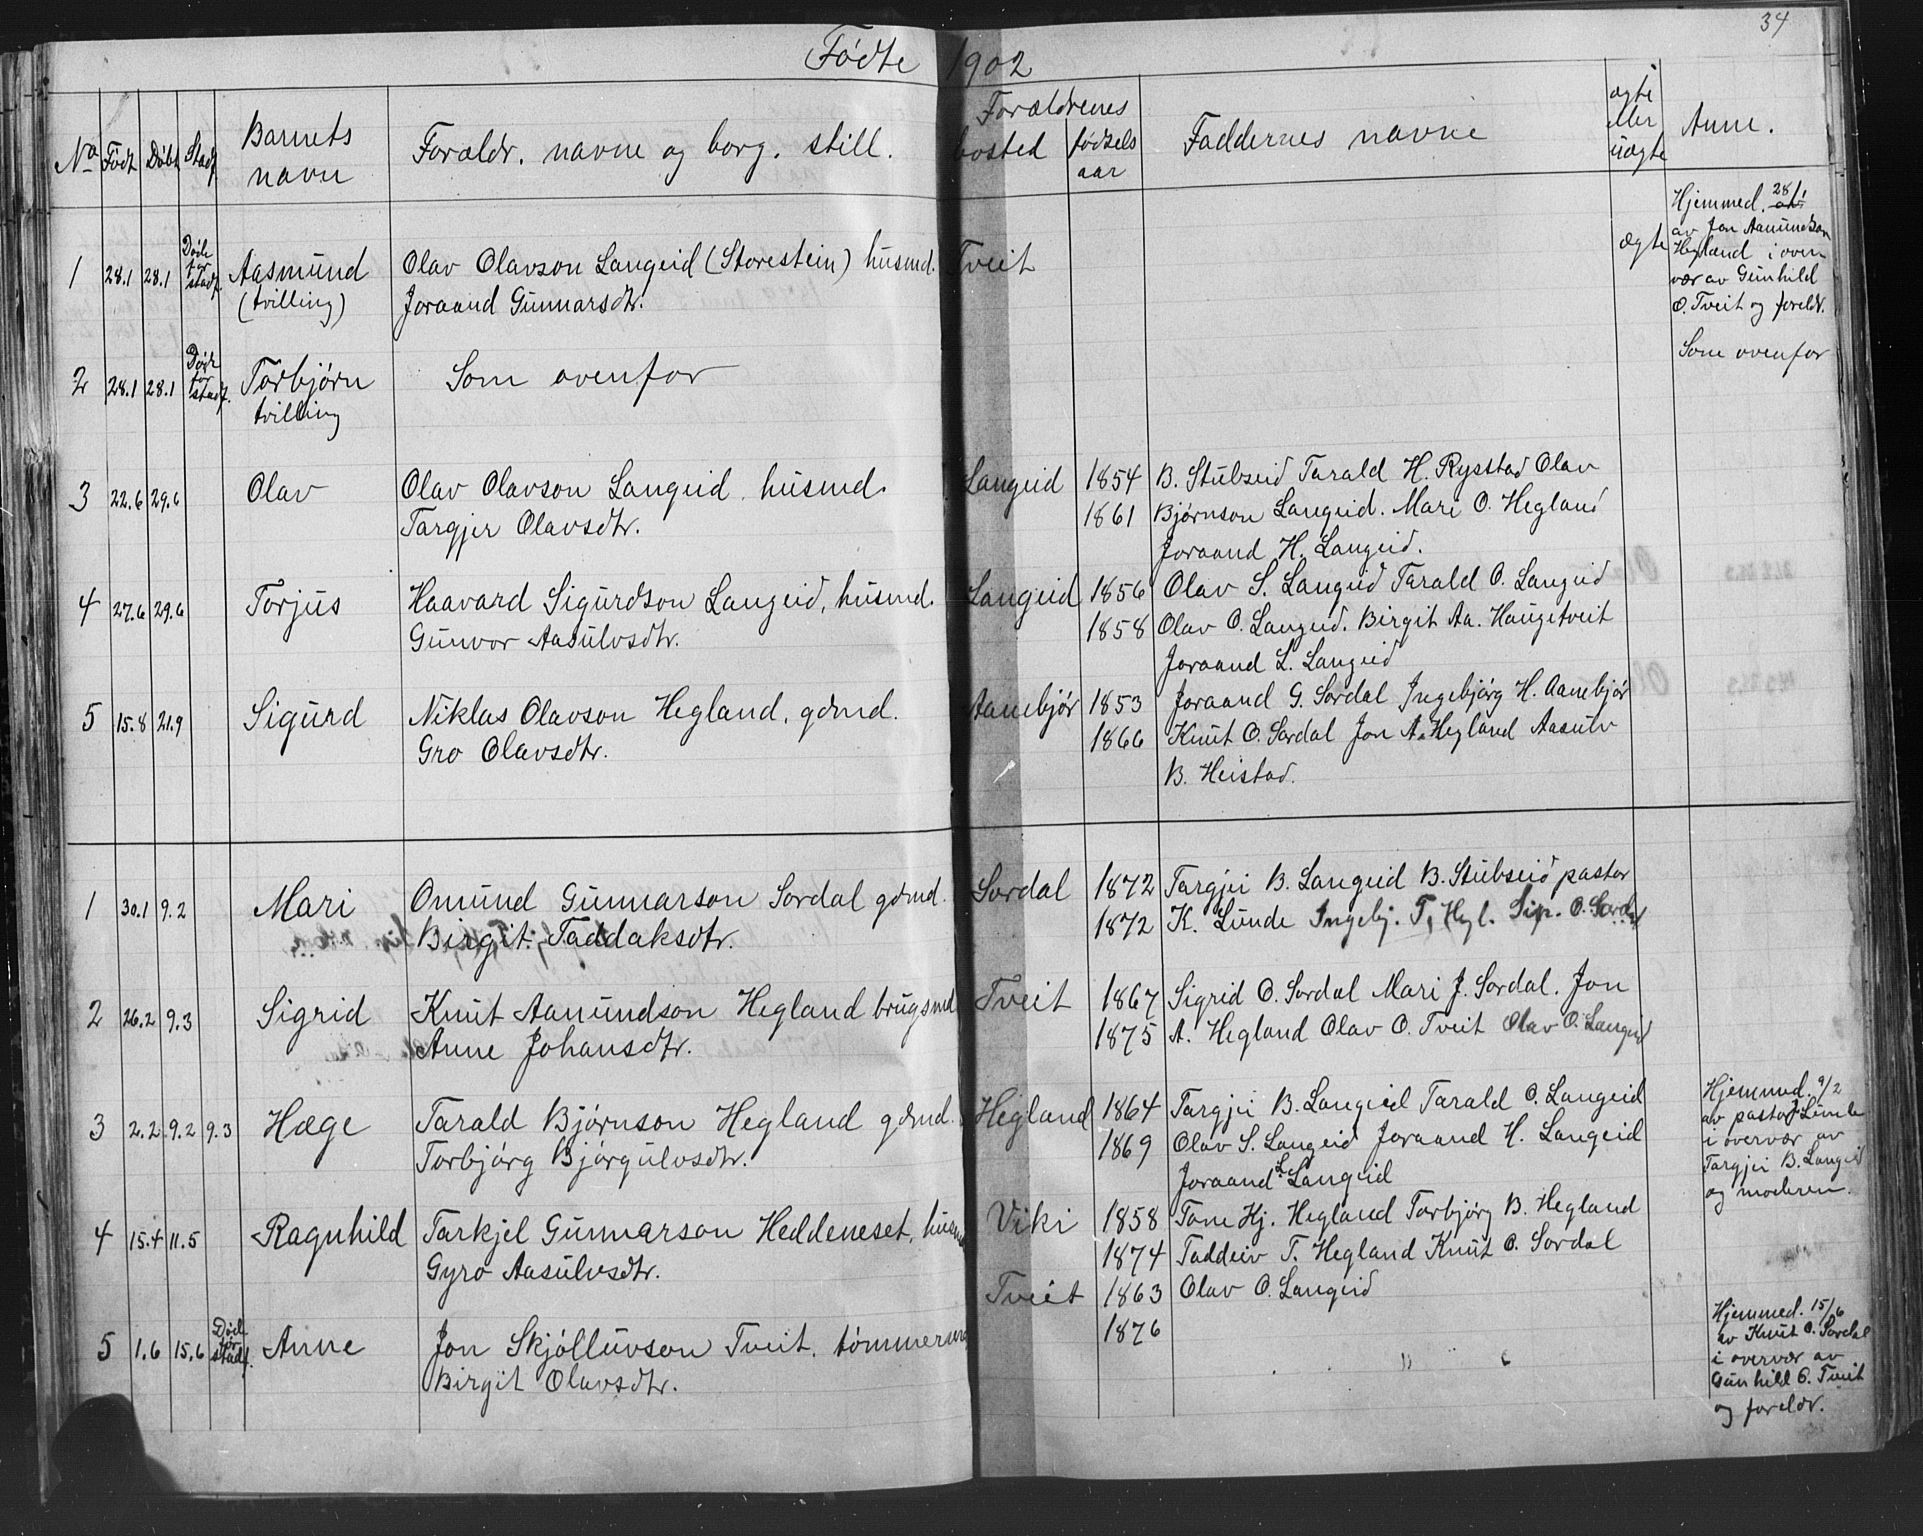 34
Fødte 1902
No Født Døbt Stadf. Barnets navn Forældr. navne og borg. still. Forældrenes bosted fødsels aar Faddernes navne ægte eller uægte Anm.
1 28.1 28.1 Død før stadf. Aasmund Olav Olavson Langeid (Storestein) husmd. Tveit ægte
(tvilling) Joraand Gunnarsdtr.
Hjemmed. 28/1
av Jon Aamundson
Hegland i over
vær av Gunhild
O. Tveit og foreldr.
2 28.1 28.1 Død før stadf. Torbjørn Som ovenfor Som ovenfor
tvilling
3 22.6 29.6 Olav Olav Olavson Langeid, husmd. Langeid 1854 B. Stubseid Tarald H. Rysstad Olav
Targjer Olavsdtr. 1861 Bjørnson Langeid. Mari O. Hegland
Joraand H. Langeid.
4 27.6 29.6 Torjus Haavard Sigurdson Langeid, husmd. Langeid 1856 Olav S. Langeid Tarald O. Langeid
Gunvor Aasulvsdtr. 1858 Olav O. Langeid. Birgit Aa. Haugetveit
Joraand L. Langeid
5 15.8 21.9 Sigurd Niklas Olavson Hegland, gdmd. Aanebjør 1853 Joraand G. Sordal Ingebjørg H. Aanebjør
Gro Olavsdtr. 1866 Knut O. Sordal Jon A. Hegland Aasulv
B. Heistad.
1 30.1 9.2 Mari Omund Gunnarson Sordal gdmd. Sordal 1872 Targjei B. Langeid B. Stubseid pastor
Birgit Taddaksdtr. 1872 K. Lunde Ingebj. T. Hegl. Sig. O. Sordal
2 26.2 9.3 Sigrid Knut Aamundson Hegland brugsmd Tveit 1867 Sigrid O. Sordal Mari J. Sordal. Jon
Anne Johansdtr. 1875 A. Hegland Olav O. Tveit Olav O. Langeid
3 2.2 9.2 9.3 Hæge Tarald Bjørnson Hegland gdmd. Hegland 1864 Targjei B. Langeid Tarald O. Langeid
Torbjørg Bjørgulvsdtr. 1869 Olav S. Langeid Joraand H. Langeid
Joraand L. Langeid
Hjemmed. 9/2
av pastor Lunde
i overvær av
Targjei B. Langeid
og moderen.
4 15.4 11.5 Ragnhild Tarkjel Gunnarson Heddeneset, husmd Viki 1858 Tone Hj. Hegland Torbjørg B. Hegland
Gyro Aasulvsdtr. 1874 Taddeiv T. Hegland Knut O. Sordal
Olav O. Langeid
5 1.6 15.6 Død før stadf. Anne Jon Skjølluvson Tveit, tømmerm Tveit 1863
Birgit Olavsdtr. 1876
Hjemmed. 15/6
av Knut O. Sordal
i overvær av
Gunhild O. Tveit
og foreldr.